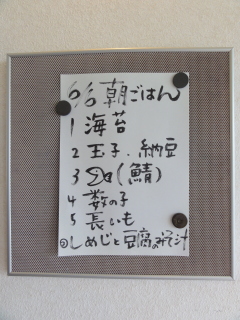 6/6 朝ごはん
1 海苔
2 玉子、納豆
3 (鯖)
4 数の子
5 長いも
⑥しめじと豆腐のみそ汁